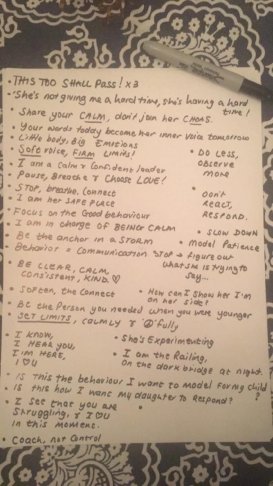 • THIS TOO SHALL PASS! x3
• "She's not giving me a hard time, she's having a hard
time!
• Share your CALM, don't join her CHAOS.
• Your words today become her inner voice tomorrow
• Little body, Big Emotions
• Soft voice, FIRM Limits!
• DO LESS,
OBSERVE
MORE
• I am a calm & confident leader
• Pause, Breathe & Choose LOVE!
• Stop, breathe, Connect
• I am her SAFE PLACE
• DON'T
REACT,
RESPOND.
• Focus on the Good behaviour
• I am in charge of BEING CALM
• SLOW DOWN
• Be the anchor in a STORM
• Model Patience
• Behavior = Communication
Stop & figure out
what she is trying to
say...
• BE CLEAR, CALM,
CONSISTENT, KIND. ♡
• SOFTEN, the Connect
• How can I show her I'm
on her side?
• BE the Person you needed when you were younger
• SET LIMITS, calmly & ☮'fully
• I KNOW,
I HEAR YOU,
I'M HERE,
I ♡ U
• She's Experimenting
• I am the Railing,
On the dark bridge at night.
• IS this the behaviour I want to model for my child
?
• IS this how I want my daughter to Respond?
• I see that you are
Struggling, & I ♡ U
in this moment.
• Coach, not Control